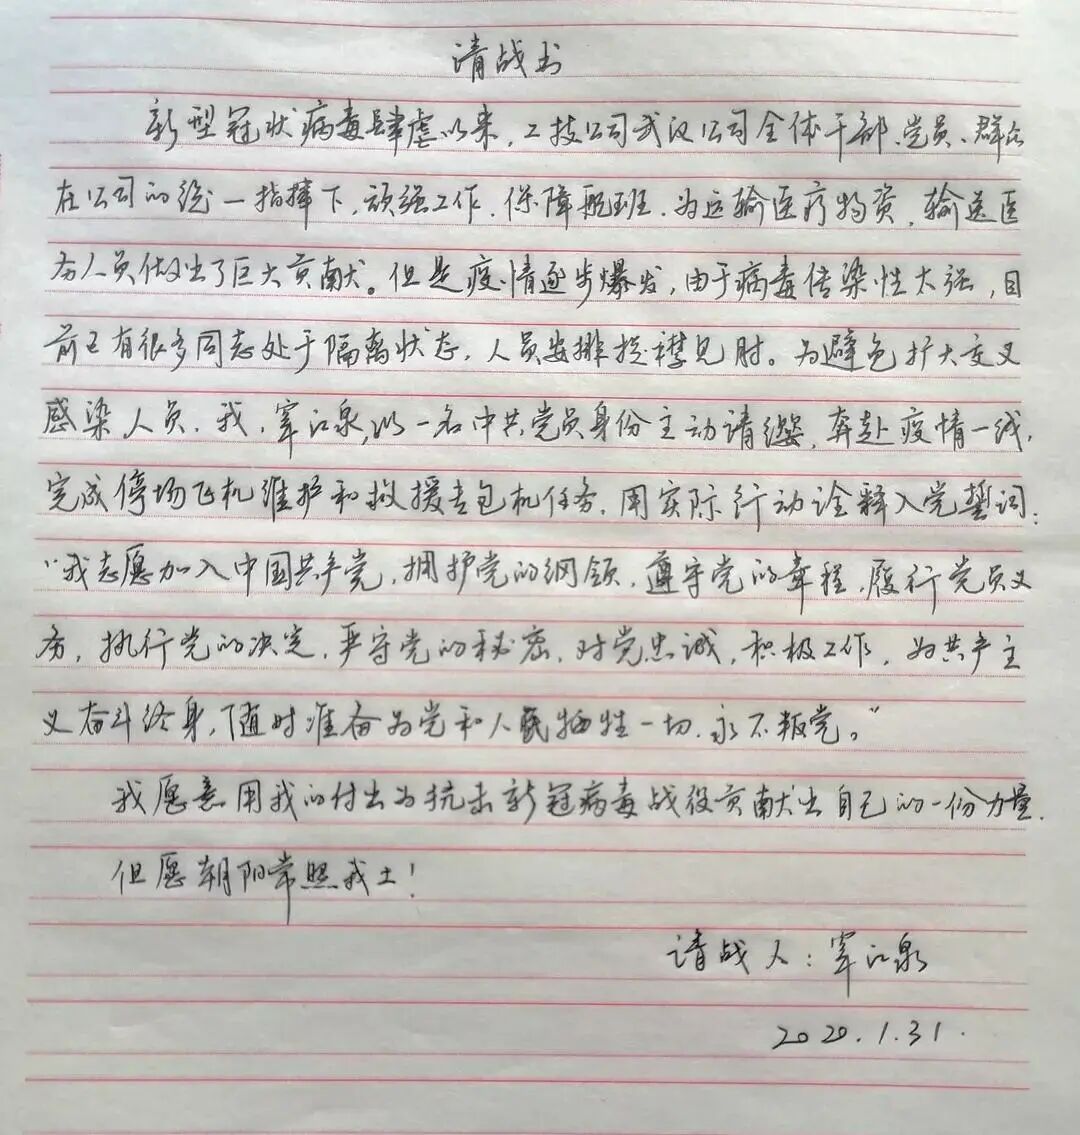 请战书
新型冠状病毒肆虐以来，工技公司武汉公司全体干部、党员、群众
在公司的统一指挥下，顽强工作，保障航班，为运输医疗物资，输送医
务人员做出了巨大贡献。但是疫情逐步爆发，由于病毒传染性太强，目
前已有很多同志处于隔离状态，人员安排捉襟见肘。为避免扩大交叉
感染人员，我，窦江泉，以一名中共党员身份主动请缨，奔赴疫情一线，
完成停场飞机维护和救援包机任务，用实际行动诠释入党誓词：
“我志愿加入中国共产党，拥护党的纲领，遵守党的章程，履行党员义
务，执行党的决定，严守党的秘密，对党忠诚，积极工作，为共产主
义奋斗终身，随时准备为党和人民牺牲一切，永不叛党。”
我愿意用我的付出为抗击新冠病毒战役贡献出自己的一份力量.
但愿朝阳常照我土！
请战人：窦江泉
2020.1.31.